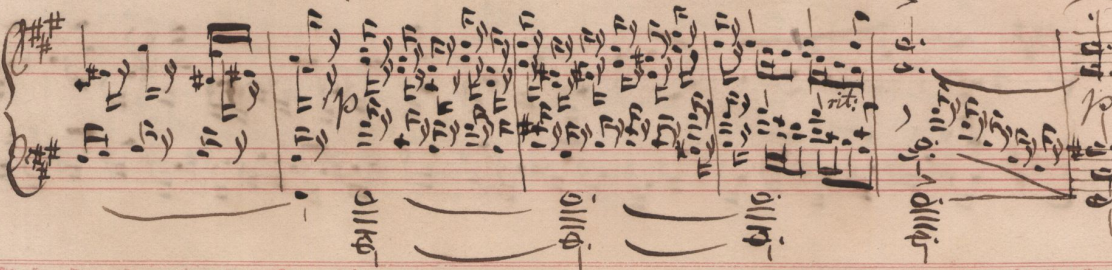 p
rit:
p